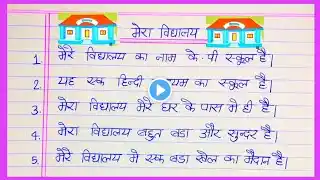 मेरा विद्यालय
1. मेरे विद्यालय का नाम के. पी स्कूल है।
2. यह एक हिन्दी का स्कूल है।
3. मेरा विद्यालय मेरे घर के पास में ही है।
4. मेरा विद्यालय बहुत बडा और सुन्दर है।
5. मेरे विद्यालय मे एक बडा खेल का मैदान है।